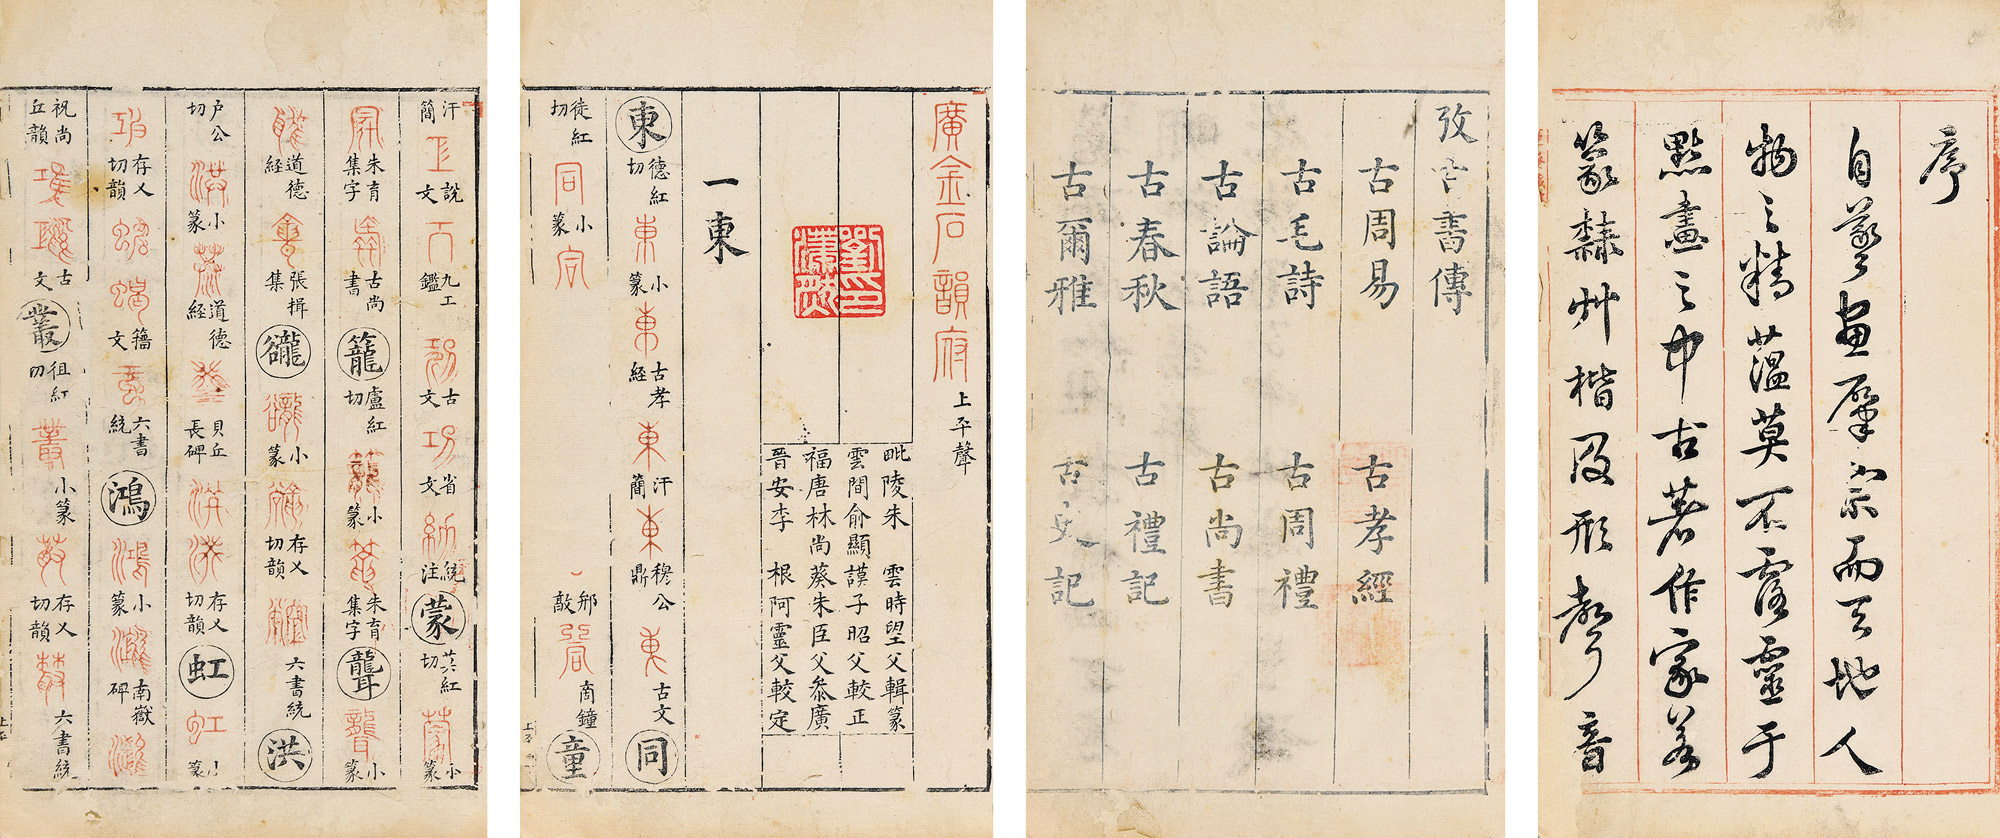 序
自羲画肇宗而天地人
物之精蕰莫不露靈于
點畫之中古著作家若
篆隸艸楷形聲音
攷古書傳
古周易 古孝經
古毛詩 古周禮
古論語 古尚書
古春秋 古禮記
古爾雅 古史記
廣金石韻府 上平聲
毗陵朱 雲時望父輯篆
雲間俞顯謨子昭父較正
福唐林尚葵朱臣父叅廣
晉安李 根阿靈父較定
劉印
一東
東 德紅切 東 小篆 東 古孝經 東 汗簡 東 穆公鼎 東 古文 同
徒紅切 同 小篆 同 敦 同 啇鐘 童
汗簡 說文 九工鑑 古文 功 省文 統注 蒙 莫紅切 蒙 小篆
朱育集字 古尚書 籠 盧紅切 籠 小篆 朱育集字 聾 聾 小篆
道德經 張揖集 小篆 存乂切韻 六書統 洪
戶公切 洪 小篆 道德經 貝丘長碑 洪 存乂切韻 虹 虹 小篆
存乂切韻 籀文 六書統 鴻 鴻 小篆 南嶽碑
祝尚丘韻 古文 叢 徂紅切 叢 小篆 存乂切韻 六書統